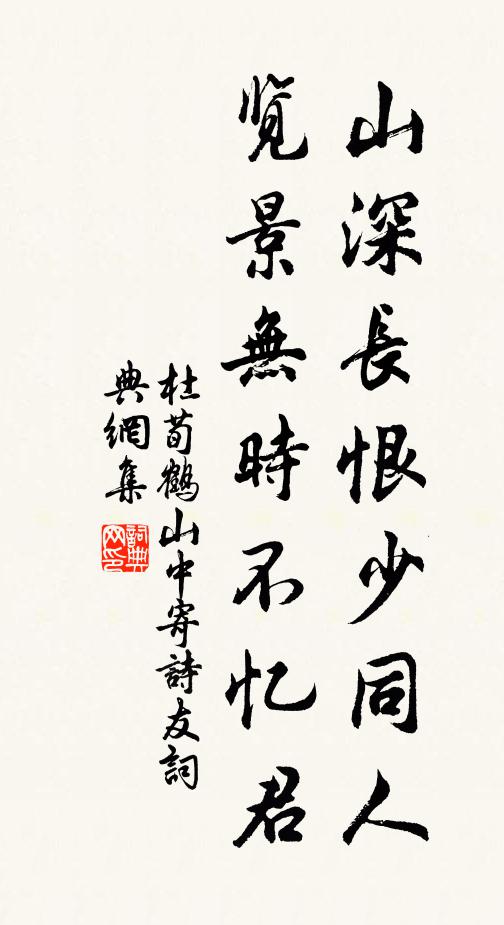 山深長恨少同人
覽景無時不忆君
杜荀鶴山中寄詩友詞
典網集
詞典网印